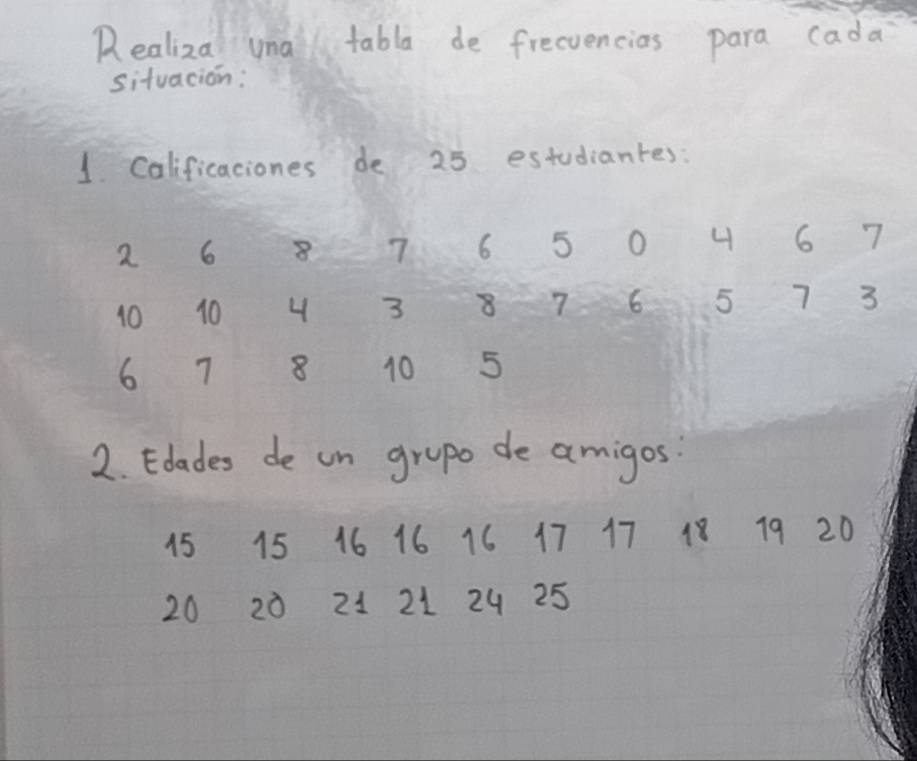 Realiza una tabla de frecuencias para cada
situación:
1. Calificaciones de 25 estudiantes:
2 6 8 7 6 5 0 4 6 7
10 10 4 3 8 7 6 5 7 3
6 7 8 10 5
2. Edades de un grupo de amigos:
15 15 16 16 16 17 17 18 19 20
20 20 21 21 24 25